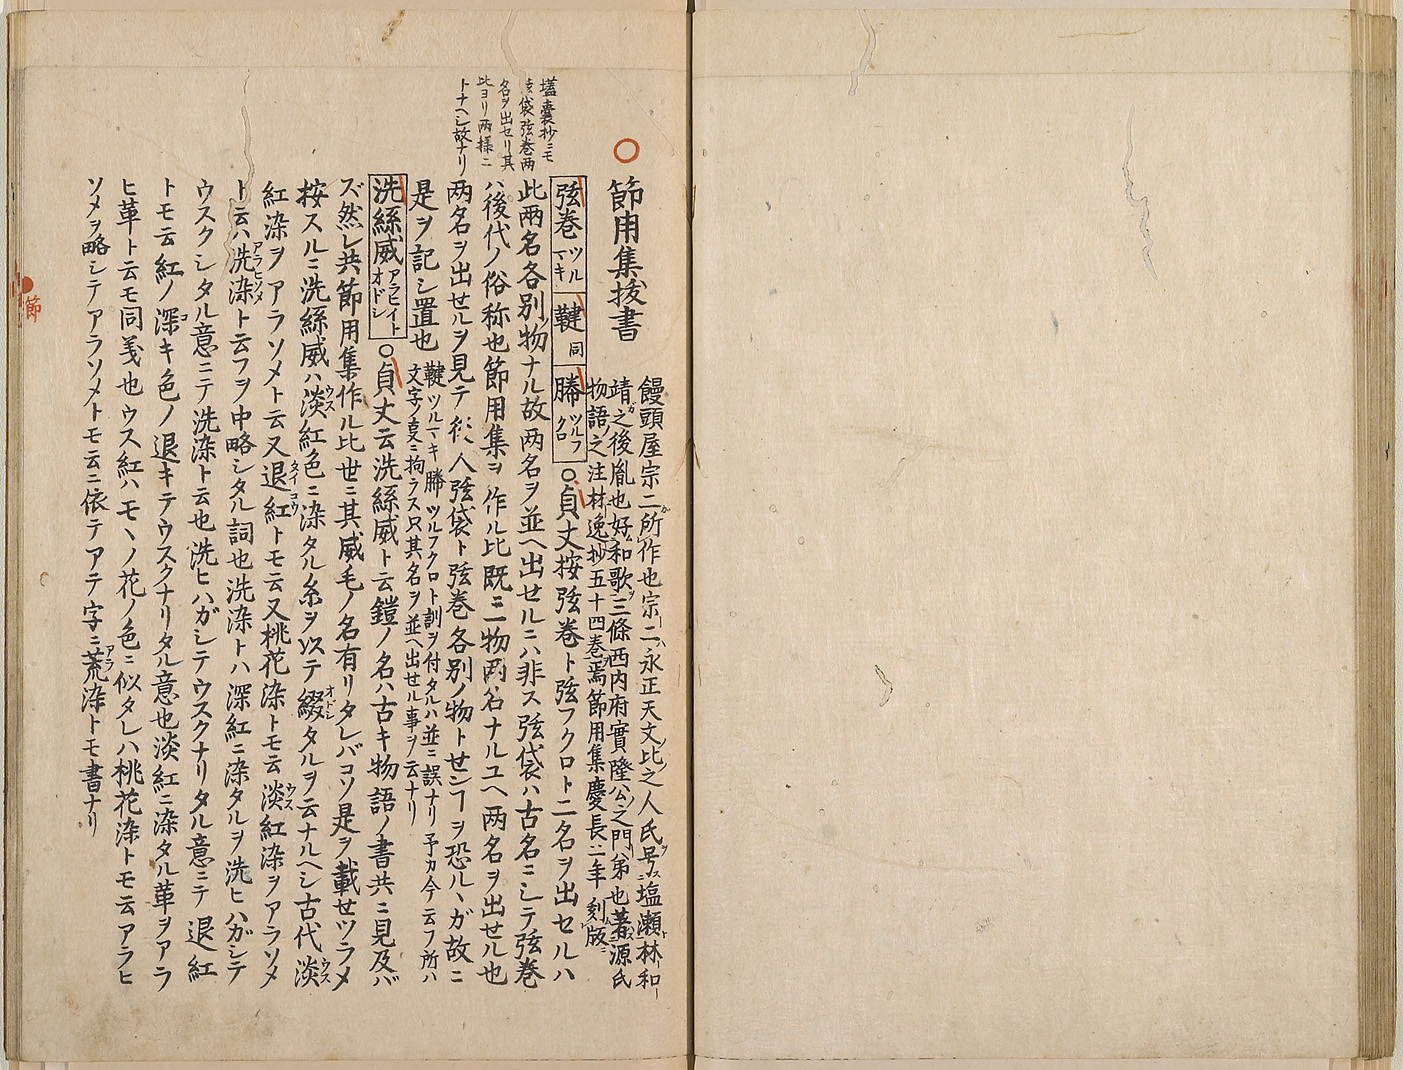 節用集抜書
饅頭屋宗二所作也宗二ハ永正天文比之人氏号塩瀬林和
靖之後胤也好和歌三條西内府實隆公之門弟也著源氏
物語之注林逸抄五十四巻焉節用集慶長二年刻版
弦巻ツルマキ 鞬同 幐ツルフクロ ○貞丈按弦巻ト弦フクロト二名ヲ出セルハ
此両名各別物ナル故両名ヲ並ヘ出セルニハ非ス弦袋ハ古名ニシテ弦巻
ハ後代ノ俗称也節用集ヲ作ル比既ニ一物両名ナルユヘ両名ヲ出セル也
両名ヲ出セルヲ見テ後人弦袋ト弦巻各別ノ物トセンヿヲ恐ルヽガ故ニ
是ヲ記シ置也 鞬ツルマキ幐ツルフクロト訓ヲ付タルハ並ニ誤ナリ予カ今云フ所ハ
文字ノ吏ニ拘ラス只其名ヲ並ヘ出セル事ヲ云ナリ
壒嚢抄ニモ
弦袋弦巻両
名ヲ出セリ其
比ヨリ両様ニ
トナヘシ故ナリ
洗絲威アラヒイトオドシ ○貞丈云洗絲威ト云鎧ノ名ハ古キ物語ノ書共ニ見及バ
ズ然レ共節用集作ル比世ニ其威毛ノ名有リタレバコソ是ヲ載セツラメ
按スルニ洗絲威ハ淡紅色ニ染タル糸ヲ以テ綴タルヲ云ナルヘシ古代淡
紅染ヲアラソメト云又退紅トモ云又桃花染トモ云淡紅染ヲアラソメ
ト云ハ洗染ト云フヲ中略シタル詞也洗染トハ深紅ニ染タルヲ洗ヒハガシテ
ウスクシタル意ニテ洗染ト云也洗ヒハガシテウスクナリタル意ニテ退紅
トモ云紅ノ深キ色ノ退キテウスクナリタル意也淡紅ニ染タル革ヲアラ
ヒ革ト云モ同義也ウス紅ハモヽノ花ノ色ニ似タレハ桃花染トモ云アラヒ
ソメヲ略シテアラソメトモ云ニ依テアテ字ニ荒染トモ書ナリ
節